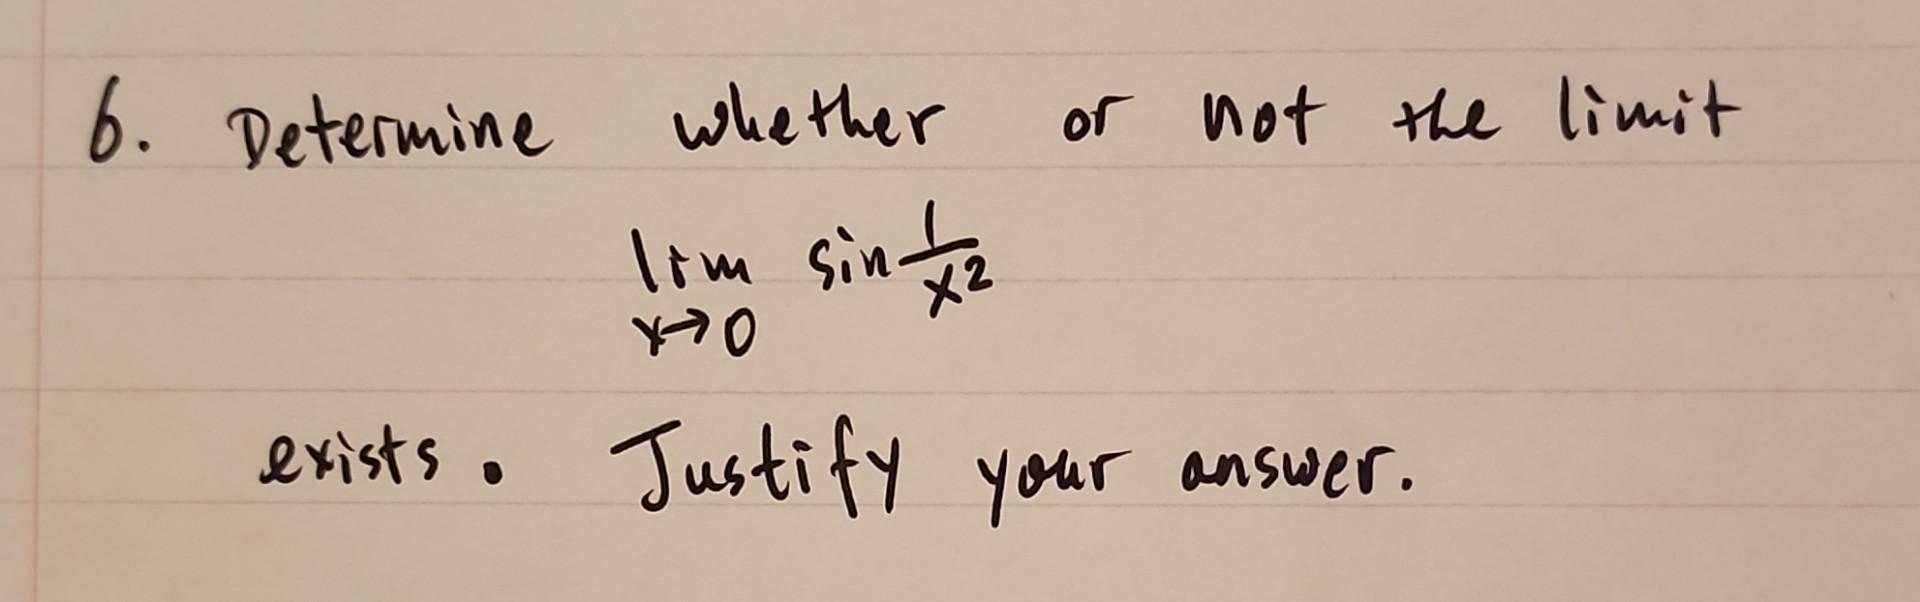 6. Determine whether or not the limit
lim sin 1/x²
x→0
exists. Justify your answer.